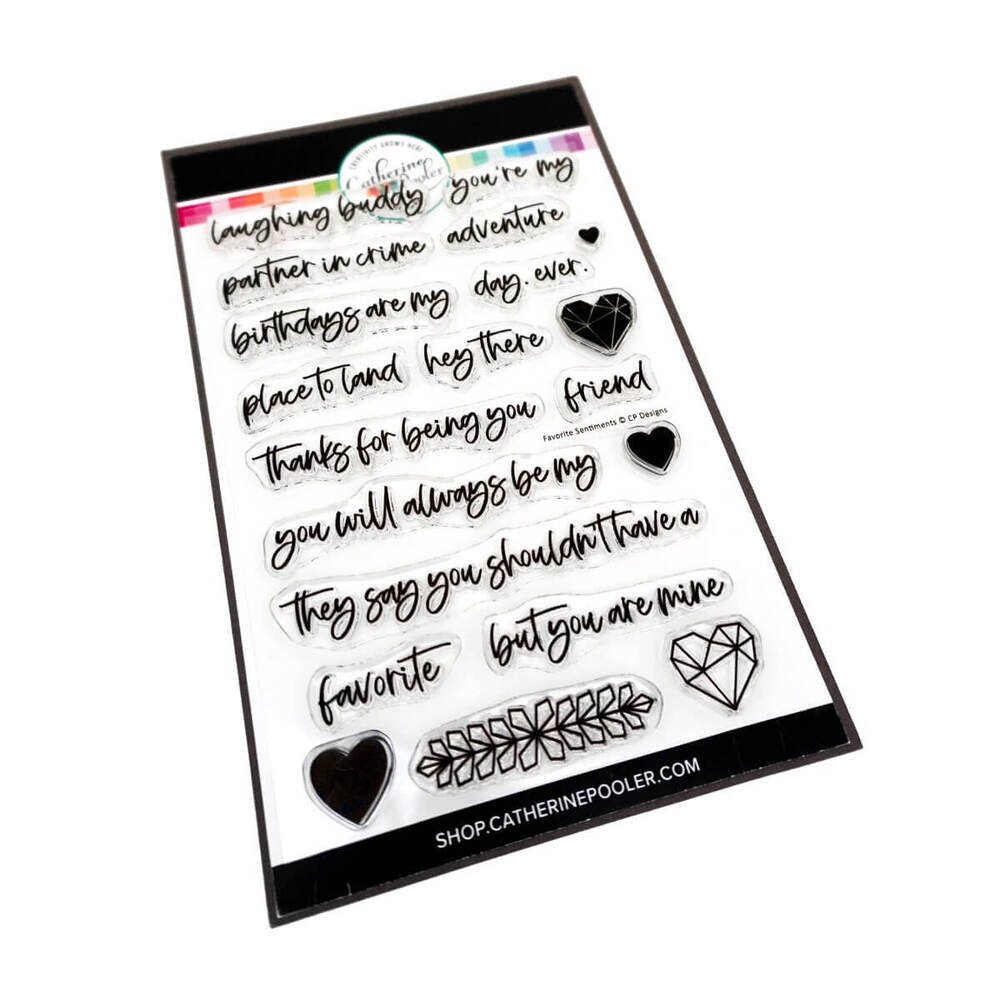 CREATIVITY GROWS HERE
Catherine
Pooler
laughing buddy you're my
partner in crime adventure
birthdays are my day. ever.
place to land hey there
thanks for being you friend
Favorite Sentiments © CP Designs
you will always be my
they say you shouldn't have a
favorite but you are mine
SHOP.CATHERINEPOOLER.COM